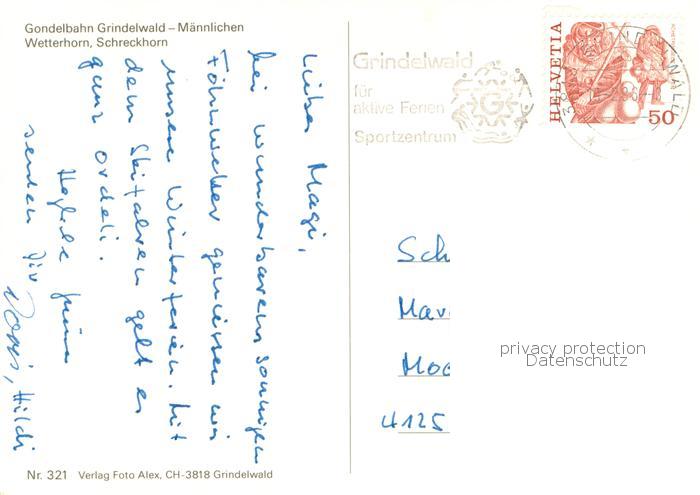 Gondelbahn Grindelwald – Männlichen
Wetterhorn, Schreckhorn
Lieber Magi,
bei wunderbarem sonnigen
Föhnwetter geniessen wir
unsere Winterferien. Mit
dem Skifahren geht es
ganz ordeli.
Herzliche Grüsse
senden Dir
Doris, Hildi
Grindelwald
für
aktive Ferien
Sportzentrum
G
HELVETIA
50
Sch
Mar
Moo
4125
privacy protection
Datenschutz
Nr. 321 Verlag Foto Alex, CH-3818 Grindelwald